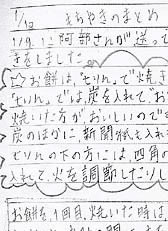 1/12 もちやきのまとめ
1/9に阿部さんが送っ
きをしました
☆お餅は、"せりん"で焼き
"せりん"では、炭を入れて"お
焼いた方が、おいしいので
炭のほかに、新聞紙も入れ
せりんの下の方には、四角の
入れて、火を調節したりし
お餅を1回目、焼いた時は